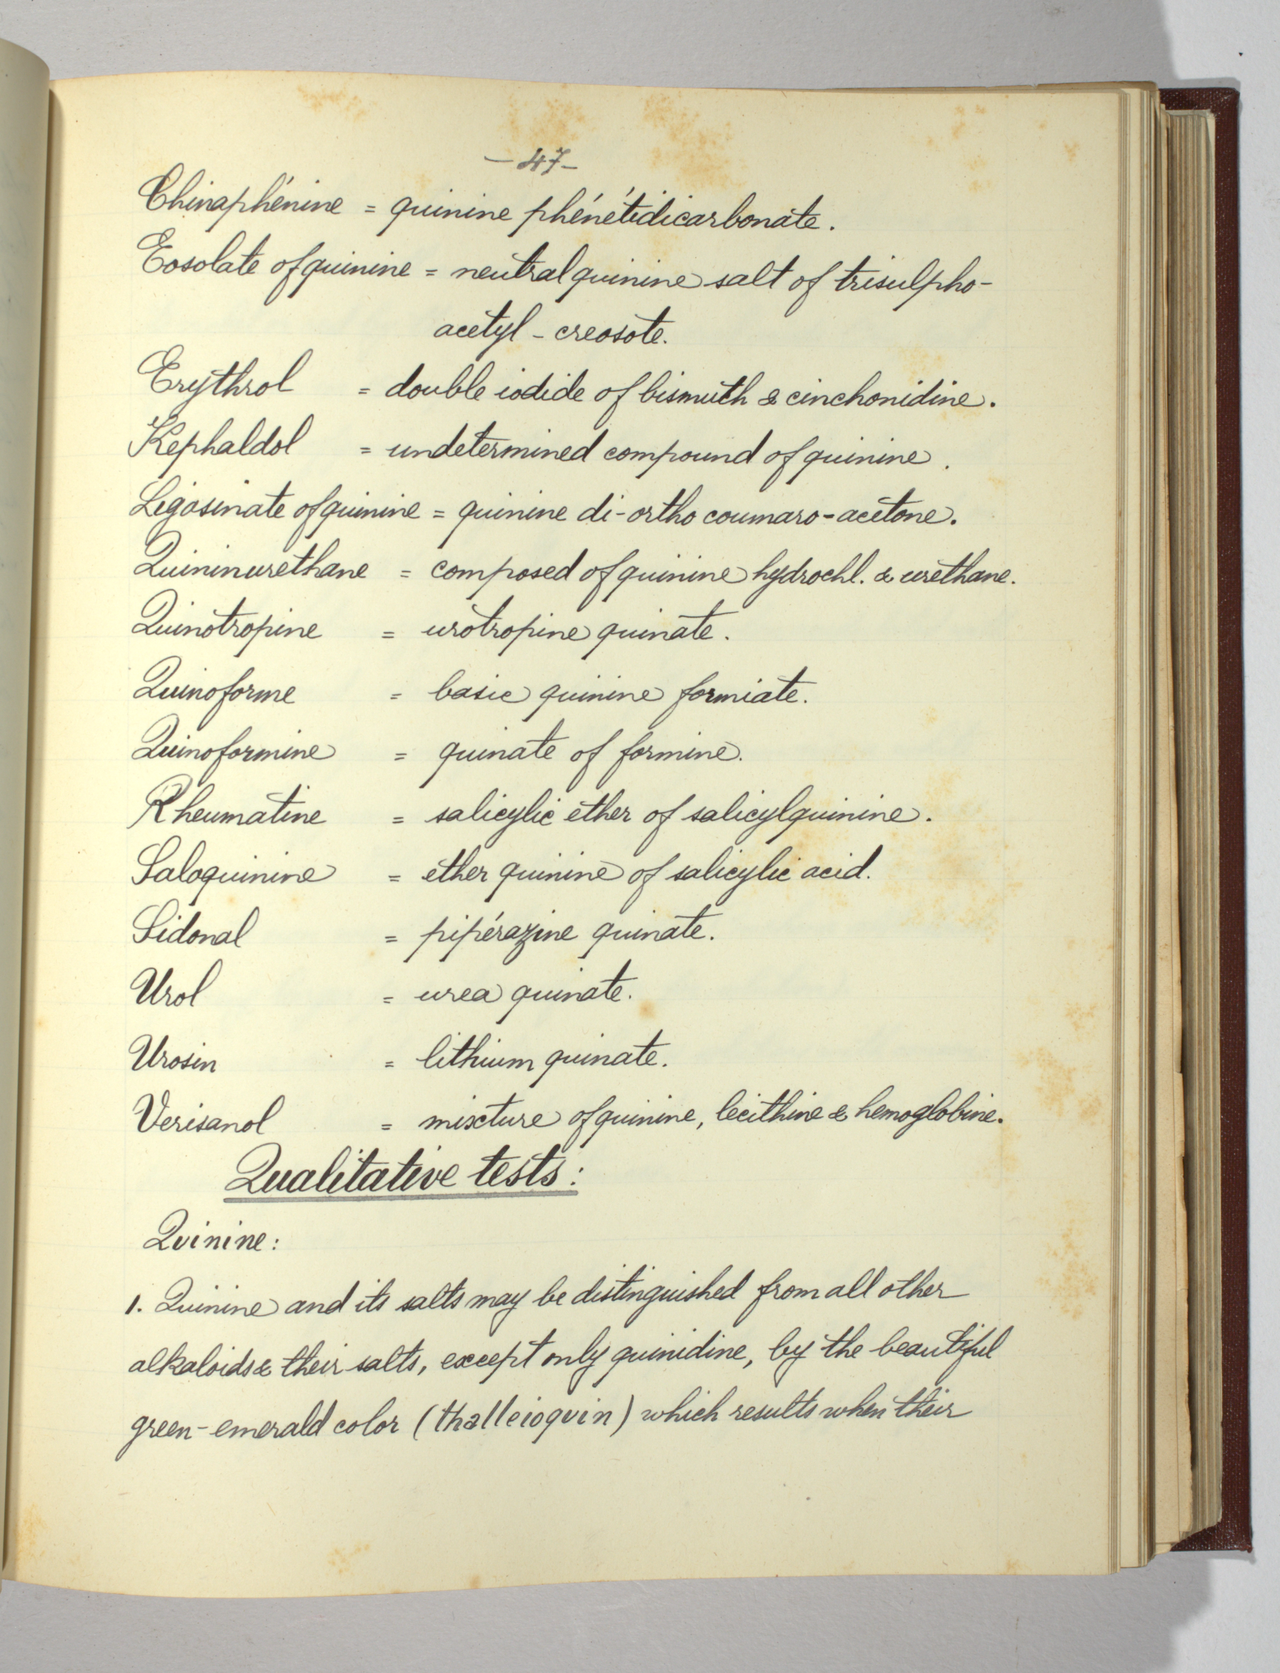 — 47 —
Chinaphénine = quinine phénétidicarbonate.
Eosolate of quinine = neutral quinine salt of trisulpho-
acetyl - creosote.
Erythrol = double iodide of bismuth & cinchonidine.
Kephaldol = undetermined compound of quinine.
Ligosinate of quinine = quinine di-ortho coumaro-acetone.
Quininurethane = composed of quinine hydrochl. & urethane.
Quinotropine = urotropine quinate.
Quinoforme = basic quinine formiate.
Quinoformine = quinate of formine.
Rheumatine = salicylic ether of salicylquinine.
Saloquinine = ether quinine of salicylic acid.
Sidonal = pipérazine quinate.
Urol = urea quinate.
Urosin = lithium quinate.
Verisanol = mixture of quinine, lecithine & hemoglobine.
Qualitative tests:
Quinine:
1. Quinine and its salts may be distinguished from all other
alkaloids & their salts, except only quinidine, by the beautiful
green-emerald color (thalleioquin) which results when their